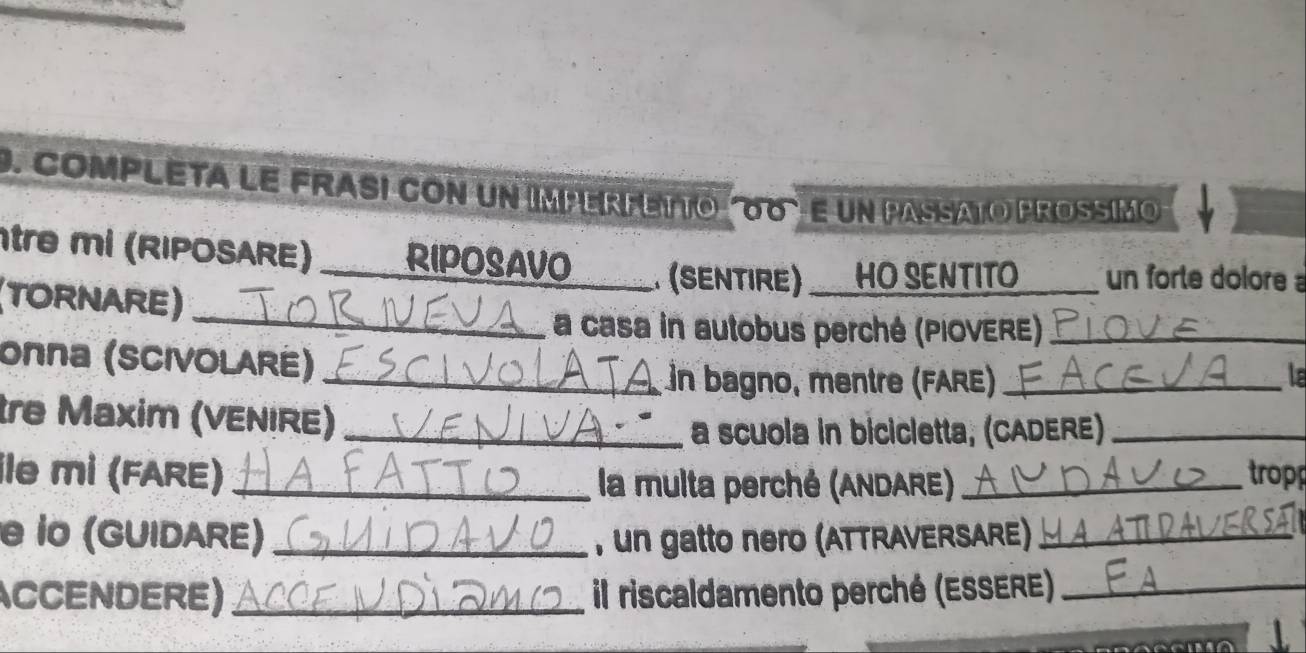 9. COMPLETA LE FRASI CON UN IMPERFETTO E UN PASSATO PROSSIMO
ntre mi (RIPOSARE) RIPOSAVO, (SENTIRE) HO SENTITO un forte dolore a
(TORNARE) TORNEVA a casa in autobus perché (PIOVERE) PIOVE
onna (SCIVOLARE) ESCIVOLATA in bagno, mentre (FARE) FACEVA la
tre Maxim (VENIRE) VENIVA a scuola in bicicletta, (CADERE)
ile mi (FARE) HA FATTO la multa perché (ANDARE) ANDAVO tropp
e io (GUIDARE) GUIDAVO, un gatto nero (ATTRAVERSARE) HA
ACCENDERE) ACCENDiAMO il riscaldamento perché (ESSERE) FA